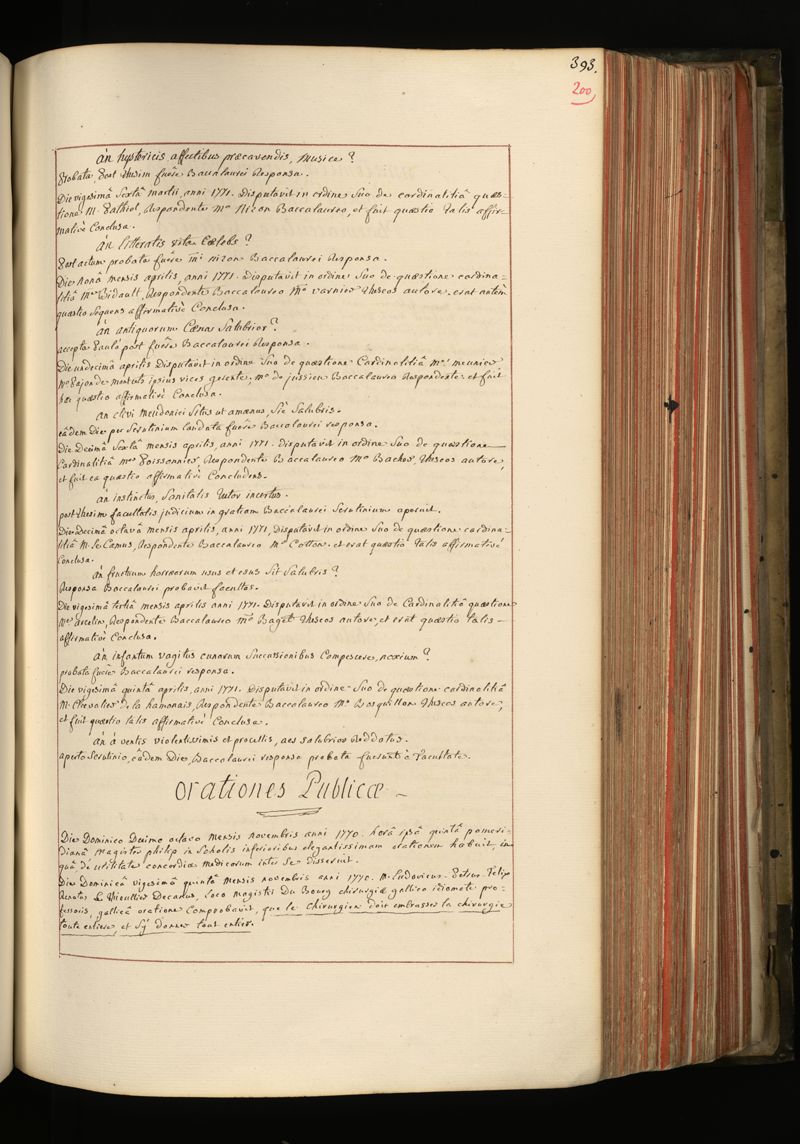 393.
200
án hystericis affectibus præcavendis, musice?
Probata Post thesim fuere Baccalaurei Responsa.
Die vigesimâ sextâ martii, anni 1771. Disputavit in ordine suo de cardinalitiâ quæs-
tione M. Pathiot, Respondente Mo. Nizon Baccalaureo, et fuit quæstio talis affir-
mativè Conclusa.
án litteratis vita Cælebs?
Post actum probata fuere mi. nizon Baccalaurei Responsa.
Die nonâ mensis aprilis, anni 1771. Disputavit in ordine suo de quæstione cardina-
litiâ Mer Bidault, Respondente Baccalaureo Mo varnier theseos autore, erat autem
quæstio sequens affirmativè Conclusa.
án antiquorum Cæna salubrior?
accepta paulò post fuere Baccalaurei Responsa.
Die undecimâ aprilis Disputavit in ordine suo de quæstione Cardinalitiâ Mri meunier
Mr Pajon de moncets ipsius vices gerente, Mo de jussieu Baccalaureo Respondente et fuit
hæc quæstio affirmativè Conclusa.
an clivi meudonici situs ut amænus, sic salubris.
eâdem Die per scrutinium laudata fuere Baccalaurei responsa.
Die Decimâ sextâ mensis aprilis, anni 1771. Disputavit in ordine suo de quæstione
Cardinalitiâ Mer Poissonnier, Respondente Baccalaureo Mo Bacher, theseos autore,
et fuit ea quæstio affirmativè Concludens.
án instinctus, sanitatis tutor incertus.
post thesim facultatis judicium in gratiam Baccalaurei scrutinium aperuit.
Die Decimâ octavâ mensis aprilis, anni 1771, Disputavit in ordine suo de quæstione cardina-
litiâ M. Le Camus, Respondente Baccalaureo Mo Cotton et erat quæstio talis affirmativè
Conclusa.
án fructuum horreorum usus et esus sit salubris?
Responsa Baccalaurei probavit facultas.
Die vigesimâ tertiâ mensis aprilis anni 1771. Disputavit in ordine suo de Cardinalitiâ quæstione
Mer arcelin, Respondente Baccalaureo Mo Baget theseos autore, et erat quæstio talis
affirmativè Conclusa.
án infantum vagitus cunarum succussionibus Compescere, noxium?
probata fuere Baccalaurei responsa.
Die vigesimâ quintâ aprilis, anni 1771. Disputavit in ordine suo de quæstione cardinalitiâ
M. Chevalier de la hamonais, Respondente Baccalaureo Mo. Bosquillon theseos autore,
et fuit quæstio talis affirmativè Conclusa.
án á ventis violentissimis et procellis, aer salubrior Reddatur.
aperto scrutinio, eâdem Die, Baccalaurei responsa probata fuerunt à facultate.
Orationes Publicæ
Die Dominico Decimo octavo mensis novembris anni 1770. horâ ipsâ quintâ pomeri-
dianâ Magister philip in scholis inferioribus elegantissimam orationem habuit, in
quâ de utilitate concordiæ medicorum inter se disseruit.
Die Dominicâ vigesimâ quintâ mensis novembris anni 1770. M. Ludovicus. Petrus Felix
Renatus Le thieullier Decanus, loco magistri Du Bourg chirurgiæ gallico idiomate pro-
fessoris, gallicâ oratione Comprobavit, que le Chirurgien doit embrasser la chirurgie
toute entiere, et s'y donner tout entier.